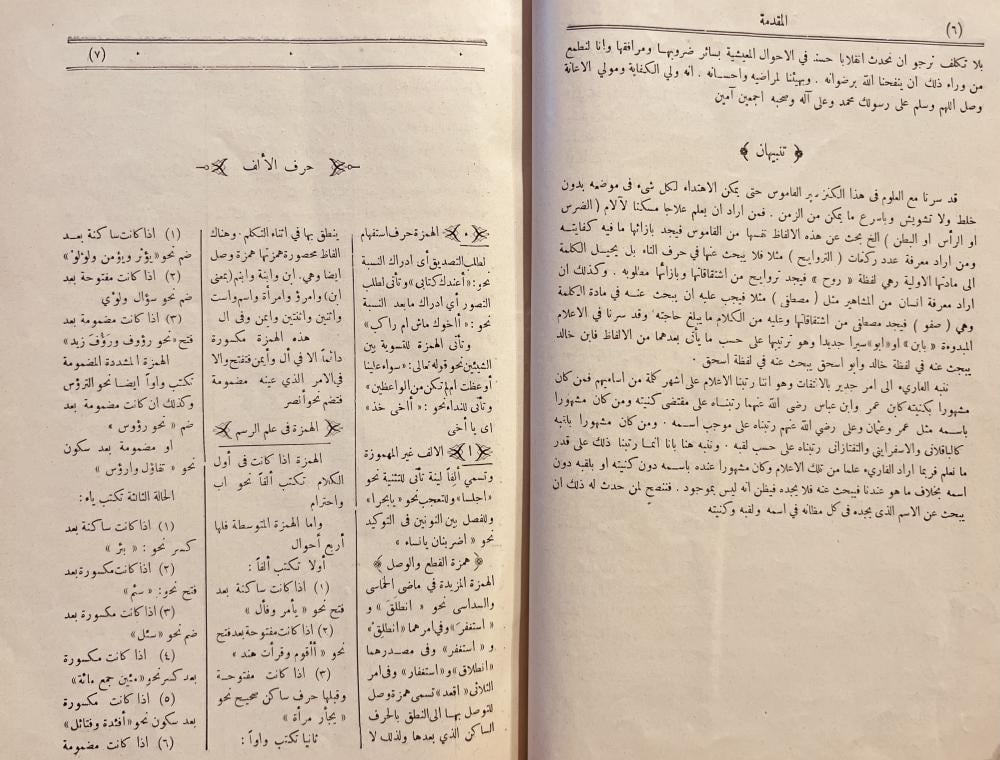 (٦)
المقدمة
بلا تكلف نرجو ان نحدث انقلابا حسنا في الاحوال المعيشية بسائر ضروبها ومرافقها وانا لنطمع
من وراء ذلك ان ينفحنا الله برضوانه . ويهيئنا لمراضيه واحسانه . انه ولي الكفاية ومولي الاعانة
وصل اللهم وسلم على رسولك محمد وعلى آله وصحبه اجمعين آمين
﴿ تنبيهان ﴾
قد سرنا مع العلوم فى هذا الكنز سير القاموس حتى يمكن الاهتداء لكل شىء فى موضعه بدون
خلط ولا تشويش وباسرع ما يمكن من الزمن . فمن اراد ان يعلم علاجا مسكنا لآلام ( الضرس
او الرأس او البطن ) الخ بحث عن هذه الالفاظ نفسها من القاموس فيجد بازائها ما فيه كفايته
ومن اراد معرفة عدد ركعات ( التراويح ) مثلا فلا يبحث عنها فى حرف التاء بل يحيل الكلمة
الى مادتها الاولية وهي لفظة « روح » فيجد تراويح من اشتقاقاتها وبازائها مطلوبه . وكذلك ان
اراد معرفة انسان من المشاهير مثل ( مصطفى ) مثلا فيجب عليه ان يبحث عنه في مادة الكلمة
وهي ( صفو ) فيجد مصطفى من اشتقاقاتها وعليه من الكلام ما يبلغ حاجته . وقد سرنا في الاعلام
المبدوءة « بابن » او « ابو » سيرا جديدا وهو ترتيبها على حسب ما يأتى بعدهما من الالفاظ فابن خالد
يبحث عنه في لفظة خالد وابو اسحق يبحث عنه في لفظة اسحق .
ننبه القاريء الى امر جدير بالالتفات وهو اننا رتبنا الاعلام على اشهر كلمة من اساميهم فمن كان
مشهورا بكنيته كابن عمر وابن عباس رضي الله عنهما رتبناه على مقتضى كنيته ومن كان مشهورا
باسمه مثل عمر وعثمان وعلى رضي الله عنهم رتبناه على موجب اسمه . ومن كان مشهورا بلقبه
كالباقلانى والاسفراينى والتفتازانى رتبناه على حسب لقبه . وننبه هنا بانا انما رتبنا ذلك على قدر
ما نعلم فربما اراد القاريء علما من تلك الاعلام وكان مشهورا عنده باسمه دون كنيته او بلقبه دون
اسمه بخلاف ما هو عندنا فيبحث عنه فلا يجده فيظن انه ليس بموجود . فننصح لمن حدث له ذلك ان
يبحث عن الاسم الذى يجده فى كل مظانه في اسمه ولقبه وكنيته
(٧)
حرف الألف
﴿ ء ﴾ الهمزة حرف استفهام
لطلب التصديق أى ادراك النسبة
نحو : « أعندك كتابى » وتأتى لطلب
التصور أى ادراك ما بعد النسبة
نحو : « أأخوك ماش ام راكب »
وتأتى الهمزة للتسوية بين
الشيئين نحو قوله تعالى : « سواء علينا
أوعظت ام لم تكن من الواعظين »
وتأتى للنداء نحو : « أأخى خذ »
اى يا أخى
﴿ ا ﴾ الالف غير المهموزة
وتسمي ألفاً لينة تأتى للتثنية نحو
« اجلسا » وللتعجب نحو « يابحرا »
وللفصل بين النونين فى التوكيد
نحو « اضربنان يانساء »
﴿ همزة القطع والوصل ﴾
الهمزة المزيدة في ماضى الخماسى
والسداسى نحو « انطلَقَ » و
« استغفرَ » وفي امرهما « انطلِقْ »
و « استغفر » وفى مصدرهما
« انطلاق » و « استغفار » وفى امر
الثلاثى « اقعد » تسمى همزة وصل
للتوصل بها الى النطق بالحرف
الساكن الذي بعدها ولذلك لا
ينطق بها فى اثناء التكلم . وهناك
الفاظ محصورة همزتها همزة وصل
ايضا وهي . ابن وابنة وابنم ( بمعنى
ابن ) وامرؤ وامرأة واسم واست
واثنين واثنتين وايمن وفى ال
هذه الهمزة مكسورة
دائماً الا في ال وأيمن فتفتح والا
في الامر الذي عينه مضمومة
فتضم نحو أنصر
﴿ الهمزة فى علم الرسم ﴾
الهمزة اذا كانت فى أول
الكلام تكتب ألفاً نحو اب
واحترام
واما الهمزة المتوسطة فلها
أربع أحوال
أولا تكتب ألفاً :
(١) اذا كانت ساكنة بعد
فتح نحو « يأمر وفأل »
(٢) اذا كانت مفتوحة بعد فتح
نحو « أأقوم وقرأت هند »
(٣) اذا كانت مفتوحة
وقبلها حرف ساكن صحيح نحو
« يجأر مرأة »
ثانيا تكتب واواً :
(١) اذا كانت ساكنة بعد
ضم نحو « يؤثر ويؤمن ولؤلؤ »
(٢) اذا كانت مفتوحة بعد
ضم نحو سؤال ولؤي
(٣) اذا كانت مضمومة بعد
فتح « نحو رؤوف ورَؤُف زيد »
الهمزة المشددة المضمومة
تكتب واواً ايضا نحو الترؤس
وكذلك ان كانت مضمومة بعد
ضم « نحو رؤوس »
او مضمومة بعد سكون
نحو « تفاؤل وارؤس »
الحالة الثالثة تكتب ياء :
(١) اذا كانت ساكنة بعد
كسر نحو : « بئر »
(٢) اذا كانت مكسورة بعد
فتح نحو : « سئم »
(٣) اذا كانت مكسورة بعد
ضم نحو « سئل »
(٤) اذا كانت مكسورة
بعد كسر نحو « مئين جمع مائة »
(٥) اذا كانت مكسورة
بعد سكون نحو « أفئدة وقتائل »
(٦) اذا كانت مضمومة